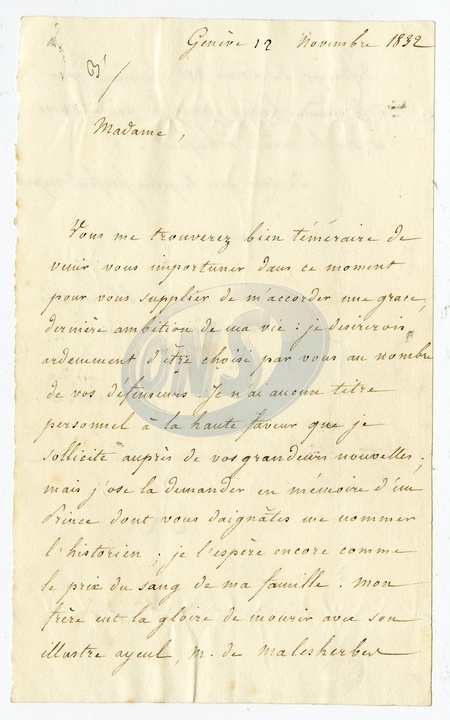 Genève 12 Novembre 1832
Madame,
Vous me trouverez bien téméraire de
venir vous importuner dans ce moment
pour vous supplier de m'accorder une grace,
dernière ambition de ma vie : je desirerois
ardemment d'être choisi par vous au nombre
de vos défenseurs. Je n'ai aucun titre
personnel à la haute faveur que je
sollicite auprès de vos grandeurs nouvelles ;
mais j'ose la demander en mémoire d'un
Prince dont vous daignâtes me nommer
l'historien ; je l'espère encore comme
le prix du sang de ma famille. Mon
frère eut la gloire de mourir avec son
illustre ayeul, M. de Malesherbes